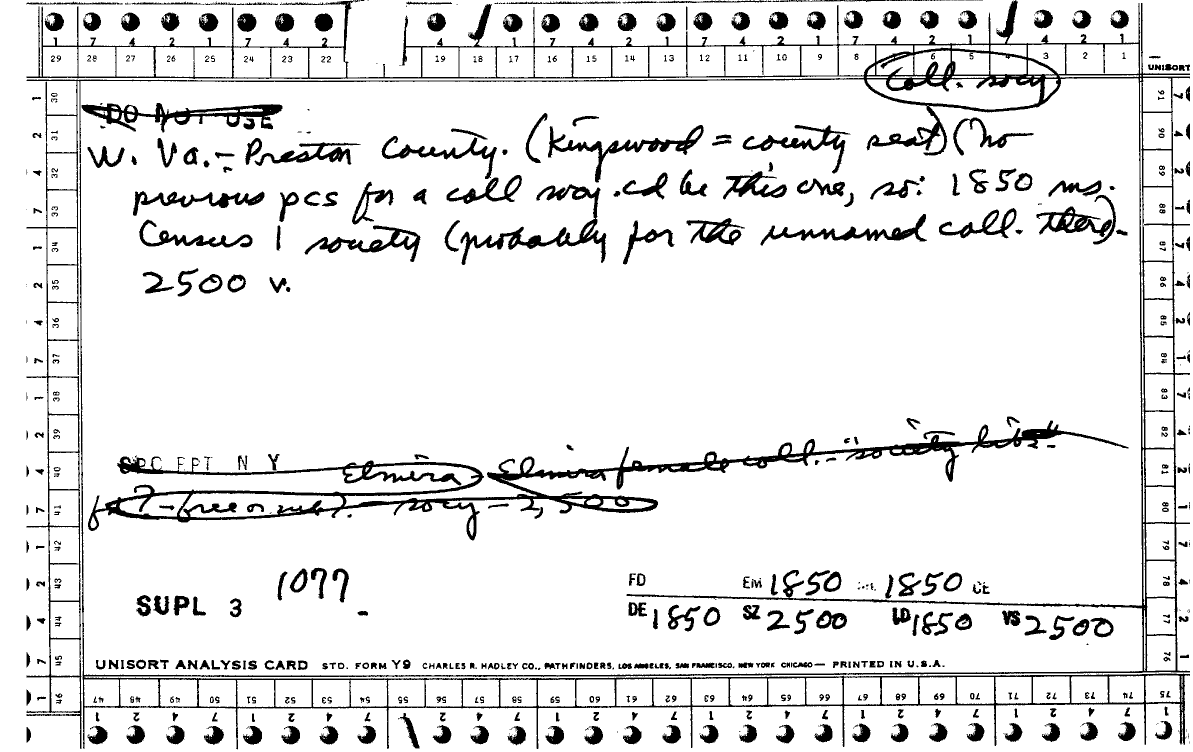 7 4 2 1 7 4 2 4 2 1 7 4 2 1 7 4 2 1 7 4 2 1 7 4 2 1
29 28 27 26 25 24 23 22 19 18 17 16 15 14 13 12 11 10 9 8 7 6 5 4 3 2 1
UNISORT
Coll. socy.
DO NOT USE
W. Va. - Preston County. (Kingswood = county seat) (no
previous pcs for a coll socy. cd be this one, so: 1850 ms.
Census 1 society (probably for the unnamed coll. there) -
2500 v.
SPC FPT N Y Elmira - Elmira female coll. - "society
? - free or sub? - socy - 2,500
SUPL 3 1077 -
FD EM 1850 1850 CE
DE 1850 SZ 2500 LD 1850 VS 2500
UNISORT ANALYSIS CARD STD. FORM Y9 CHARLES R. HADLEY CO., PATHFINDERS, LOS ANGELES, SAN FRANCISCO, NEW YORK CHICAGO — PRINTED IN U.S.A.
47 48 49 50 51 52 53 54 55 56 57 58 59 60 61 62 63 64 65 66 67 68 69 70 71 72 73 74 75